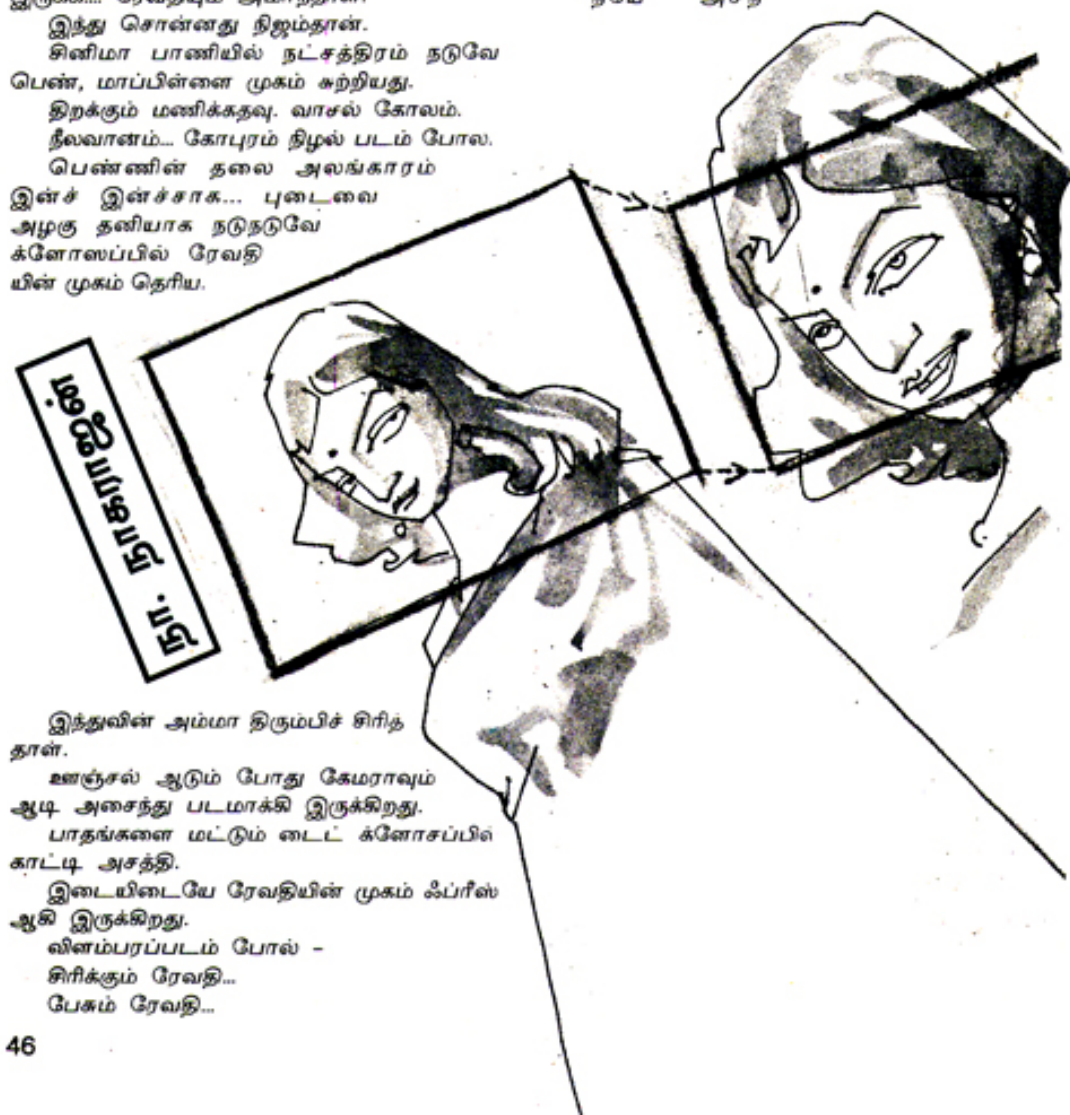 இருக்க.... ரேவதியும் அமர்ந்தாள்.
இந்து சொன்னது நிஜம்தான்.
சினிமா பாணியில் நட்சத்திரம் நடுவே
பெண், மாப்பிள்ளை முகம் சுற்றியது.
திறக்கும் மணிக்கதவு. வாசல் கோலம்.
நீலவானம்... கோபுரம் நிழல் படம் போல.
பெண்ணின் தலை அலங்காரம்
இன்ச் இன்ச்சாக... புடைவை
அழகு தனியாக நடுநடுவே
க்ளோஸப்பில் ரேவதி
யின் முகம் தெரிய.
நா. நாகராஜன்
இந்துவின் அம்மா திரும்பிச் சிரித்
தாள்.
ஊஞ்சல் ஆடும் போது கேமராவும்
ஆடி அசைந்து படமாக்கி இருக்கிறது.
பாதங்களை மட்டும் டைட் க்ளோசப்பில்
காட்டி அசத்தி.
இடையிடையே ரேவதியின் முகம் ஃப்ரீஸ்
ஆகி இருக்கிறது.
விளம்பரப்படம் போல் –
சிரிக்கும் ரேவதி...
பேசும் ரேவதி...
46